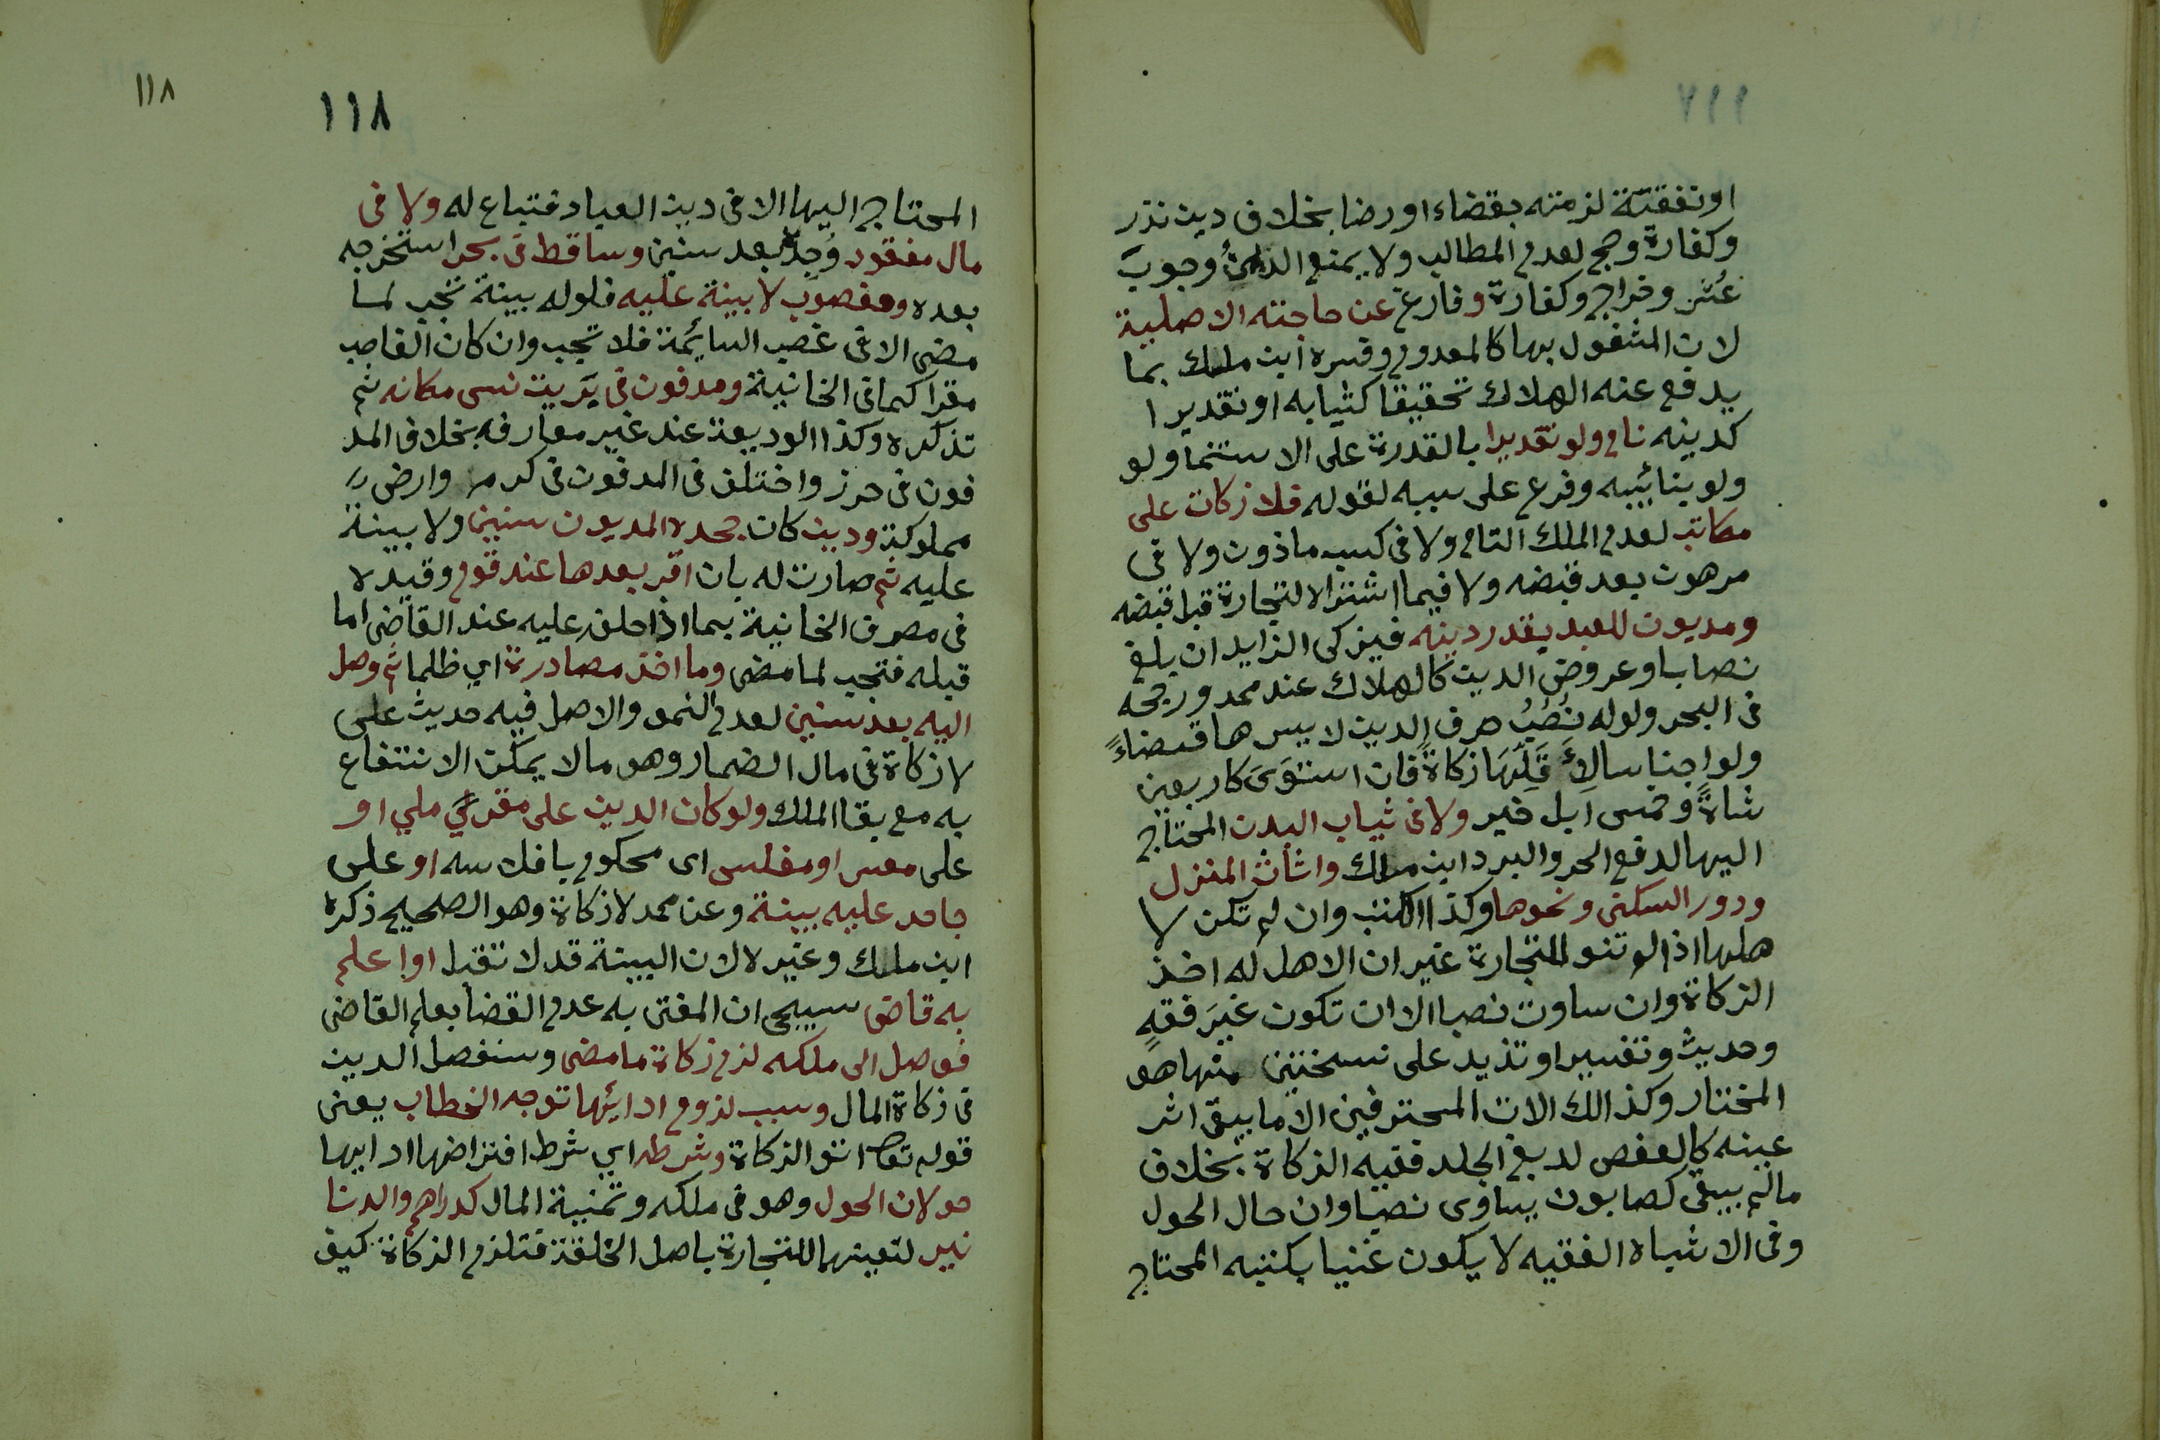 ١١٧
او نفقتة لزمته بقضاء او رضا بخلاف دين نذر
وكفارة وحج لعدم المطالب ولا يمنع الدين وجوب
عُشر وخراج وكفارة وفارغ عن حاجته الاصلية
لان المشغول بها كالمعدوم وفسره ابن ملك بما
يدفع عنه الهلاك تحقيقا كثيابه او تقديرا
كدينه نام ولو تقديرا بالقدرة على الاستنما ولو
ولو بنائيبه وفرع على سببه لقوله فلا زكات على
مكاتب لعدم الملك التام ولا فى كسب ماذون ولا فى
مرهون بعد قبضه ولا فيما اشترا لالتجارة قبل قبضه
ومديون للعبد بقدر دينه فيزكى الزايد ان بلغ
نصابا وعروض الدين كالهلاك عند محمد ورجحه
فى البحر ولوله نُصُبُ صرف الدين لا يسرها قضاءً
ولو اجناسا لاقلها زكاةً فان استوَى كاربعين
شاةً وخمس ابل خير ولا فى ثياب البدن المحتاج
اليها لدفع الحر والبرد ابن ملك واثاث المنزل
ودور السكنى ونحوها وكذا الكتب وان لم تكن لا
هلها اذا لم تنو للتجارة غير ان الاهل له اخذ
الزكاة وان ساوت نصبا الا ان تكون غيَر فقهٍ
وحديث وتفسير او تزيد على نسختين منها هو
المختار وكذالك الات المحترفين الا ما يبقى اثر
عينه كالعفص لدبغ الجلد ففيه الزكاة بخلاف
مالم يبقى كصابون يساوى نصبا وان حال الحول
وفى الاشباه الفقيه لا يكون غنيا بكتبه المحتاج
١١٨
١١٨
المحتاج اليها الا فى دين العباد فتباع له ولا فى
مال مفقود وُجِدَ بعد سنين وساقط فى بحر استخرجه
بعده ومغصوب لا بينة عليه فلوله بينة تجب لما
مضى الا فى غصب السايُمة فلا تجب وان كان الغاصب
مقرا كما فى الخانية ومدفون فى بريت نسى مكانه ثم
تذكره وكذا الوديعة عند غير معارفه بخلاف المد
فون فى حرز واختلف فى المدفون فى كرم وارض
مملوكة ودين كان جحده المديون سنين ولا بينة
عليه ثم صارت له بان اقر بعدها عند قوم وقيده
فى مصرف الخانية بما اذا حلف عليه عند القاضى اما
قبله فتجب لما مضى وما اخذ مصادرة اي ظلما ثم وصل
اليه بعد سنين لعدم النمو والاصل فيه حديث على
لا زكاة فى مال الضمار وهو مالا يمكن الانتفاع
به مع بقا الملك ولو كان الدين على مقر ملي او
على معسر او مفلس اى محكوم بافلاسه او على
جاحد عليه بينة وعن محمد لا زكاة وهو الصحيح ذكره
ابن ملك وغيره لان البينة قد لا تقبل او اعلم
به قاض سيجى ان المفتى به عدم القضا بعلم القاضى
فوصل الى ملكه لزم زكاة ما مضى وسنفصل الدين
فى زكاة المال وسبب لزوم ادائها توجه الخطاب يعنى
قوله تعا اتوا الزكاة وشرطه اي شرط افتراضها ادايها
حولان الحول وهو فى ملكه وثمنية المال كدراهم والدنا
نير لتعينهما للتجارة باصل الخلقة فتلزم الزكاة كيف